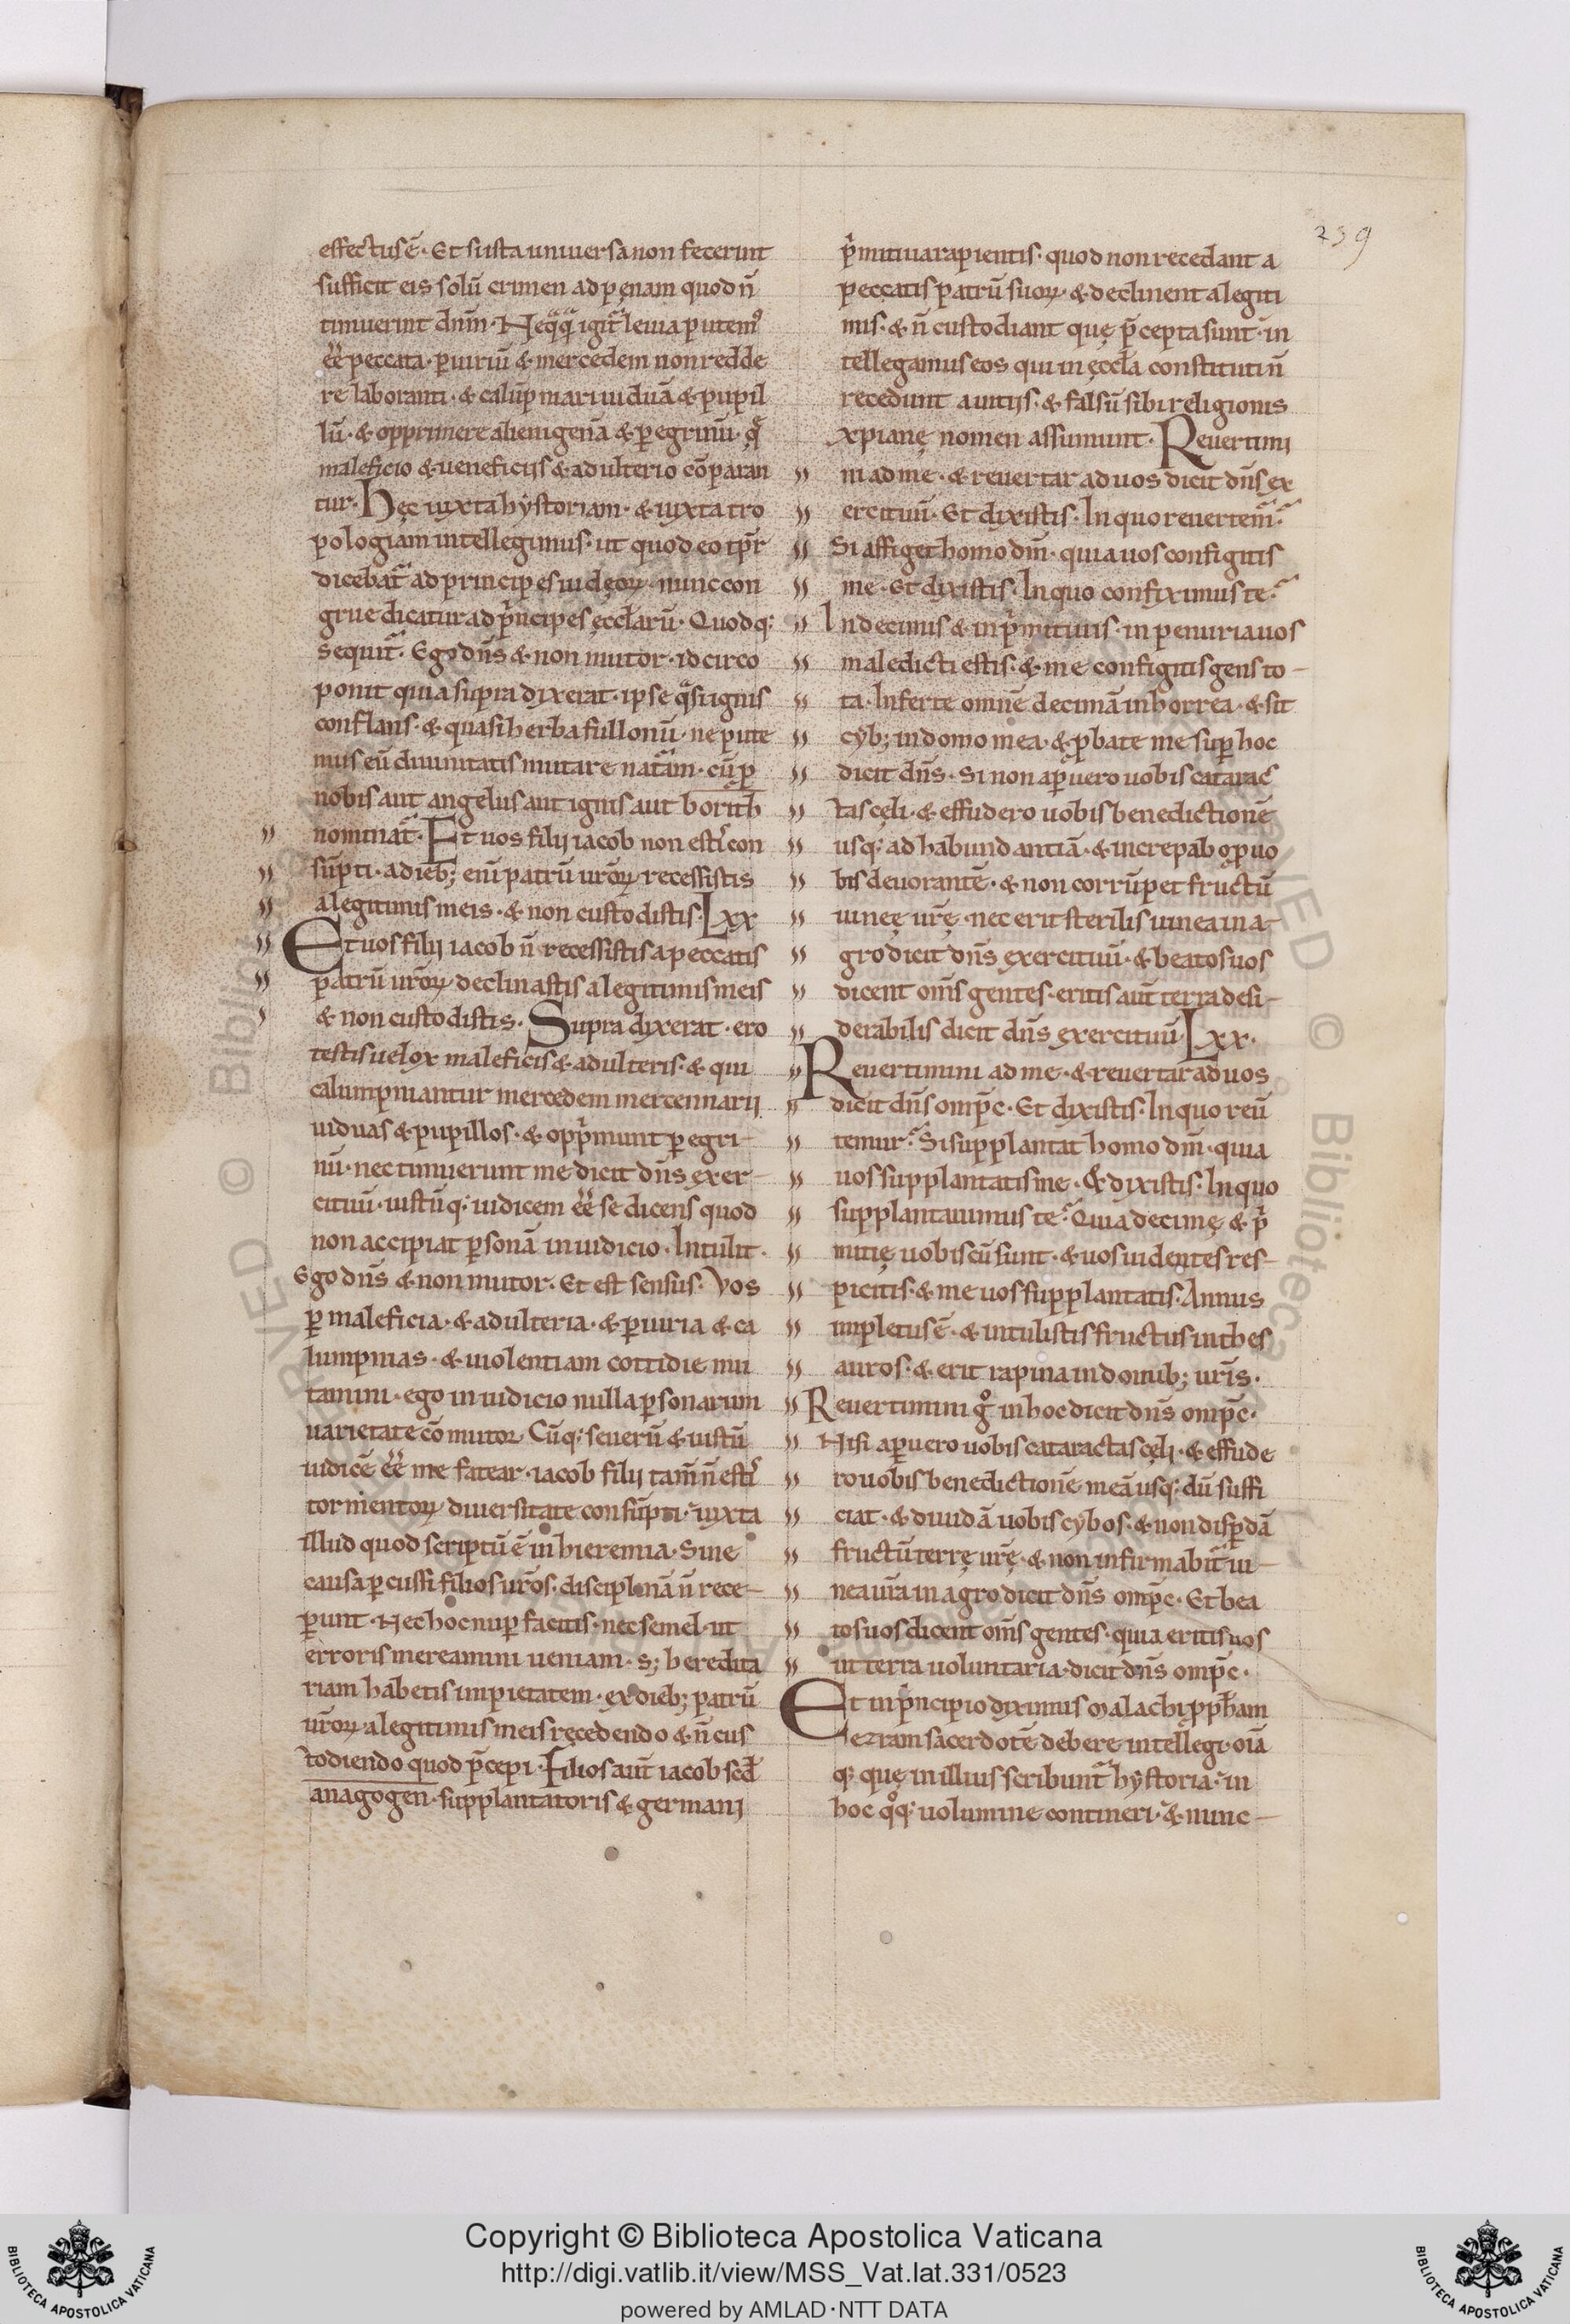 239
effectus ē. Et si ista universa non fecerint
sufficit eis solū crimen ad pęnam quod n̄
timuerint dn̄m. Neq̄q̄ igit᷑ levia putem᷒
eē peccata. ꝑiuriū & mercedem non redde
re laboranti. & calūpmari viduā & pupil
lū. & opprimere alienigenā & ꝑegrinū. q̄
maleficio & veneficiis & adulterio cōparan
tur. Hęc iuxta hystoriam. & iuxta tro
pologiam intellegimus. ut quod eo tp̄r
dicebat᷑ ad principes iudęoꝝ. nunc con
grue dicatur ad p̄ncipes ęccl̄arū. Quodq;
sequit᷑. Ego dn̄s & non mutor. idcirco
ponit quia supra dixerat. ipse q̄si ignis
conflans. & quasi herba fullonū. ne pute
mus eū divinitatis mutare nat᷑am. cū ꝓ
nobis aut angelus aut ignis aut borith
nominat᷑. Et vos filii iacob non esti᷒ con
sūpti. a dieb; enī patrū vr̄oꝝ recessistis
a legitimis meis. & non custodistis. Lxx
Et vos filii iacob n̄ recessistis a peccatis
patrū vr̄oꝝ declinastis a legitimis meis
& non custodistis. Supra dixerat. ero
testis velox maleficis & adulteris. & qui
calumpniantur mercedem mercennarii
viduas & pupillos. & opp̄munt ꝑegri-
nū. nec timuerunt me dicit dn̄s exer-
cituū. iustūq; iudicem eē se dicens quod
non accipiat ꝑsonā in iudicio. Intulit.
Ego dn̄s & non mutor. Et est sensus. Vos
ꝑ maleficia. & adulteria. & ꝑiuria & ca
lumpnias. & violentiam cottidie mu
tamini. ego in iudicio nulla ꝑsonarum
varietate cōmutor. Cūq; severū & iustū
iudicē eē me fatear. iacob filii tam̄ n̄ esti᷒
tormentoꝝ diversitate consūpti. iuxta
illud quod scriptū ē in hieremia. Sine
causa ꝑcussi filios vr̄os. disciplinā n̄ rece-
ꝑunt. Nec hoc nuꝑ facitis. nec semel. ut
erroris mereamini veniam. s; heredita
riam habetis impietatem. ex dieb; patrū
vr̄oꝝ a legitimis meis recedendo & n̄ cus
todiendo quod p̄cepi. Filios aut̄ iacob scd̄
anagogen. supplantatoris & germani
p̄mitiva rapientis. quod non recedant a
peccatis patrū suoꝝ. & declinent a legiti
mis. & n̄ custodiant quę p̄cepta sunt. in
tellegamus eos qui in ęccl̄a constituti n̄
recedunt a vitiis. & falsū sibi religionis
xpianę nomen assumunt. Revertimi
ni ad me. & revertar ad vos dicit dn̄s ex
ercituū. Et dixistis. In quo revertem᷑?
Si affiget homo dm̄. quia vos configitis
me. Et dixistis. In quo confiximus te?
In decimis & in p̄mitivis. in penuria vos
maledicti estis. & me configitis gens to-
ta. Inferte omnē decimā in horrea. & sit
cyb; in domo mea. & ꝓbate me suꝑ hoc
dicit dn̄s. Si non aꝑuero vobis catarac
tas cęli. & effudero vobis benedictionē
usq; ad habundantiā. & increpabo ꝓ vo
bis devorantē. & non corrūpet fructū
vineę vr̄ę. nec erit sterilis vinea in a-
gro dicit dn̄s exercituū. & beatos vos
dicent om̄s gentes. eritis aut̄ terra desi-
derabilis dicit dn̄s exercituū. Lxx.
Revertimini ad me. & revertar ad vos
dicit dn̄s omp̄c. Et dixistis. In quo rev̄
temur? Si supplantat homo dm̄. quia
vos supplantatis me. & dixistis. In quo
supplantavimus te? Quia decimę & p̄
mitię vobiscū sunt. & vos videntes res-
picitis. & me vos supplantatis. Annus
impletus ē. & intulistis fructus in thes
auros. & erit rapina in domib; vr̄is.
Revertimini gͦ in hoc dicit dn̄s omp̄c.
Nisi aꝑuero vobis cataractas cęli. & effude
ro vobis benedictionē meā usq; dū suffi
ciat. & dividā vobis cybos. & non disꝑdā
fructū terrę vr̄ę. & non infirmabit᷑ vi-
nea vr̄a in agro dicit dn̄s omp̄c. Et bea
tos vos dicent om̄s gentes. quia eritis vos
ut terra voluntaria. dicit dn̄s omp̄c.
Et in p̄ncipio diximus malachi pph̄am
ezram sacerdotē debere intellegi. oīa
q; quę in illius scribunt᷑ hystoria. in
hoc qͦq; volumine contineri. & nunc-
Copyright © Biblioteca Apostolica Vaticana
http://digi.vatlib.it/view/MSS_Vat.lat.331/0523
powered by AMLAD·NTT DATA
BIBLIOTECA APOSTOLICA VATICANA
BIBLIOTECA APOSTOLICA VATICANA